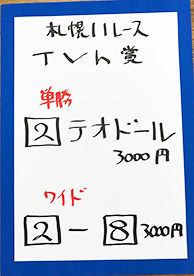 札幌11レース
TVh賞
単勝
2 テオドール
3000円
ワイド
2 - 8 3000円